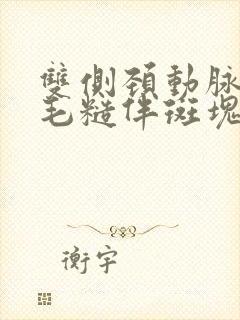 雙側頚動脉
毛糙伴斑塊
衡宇